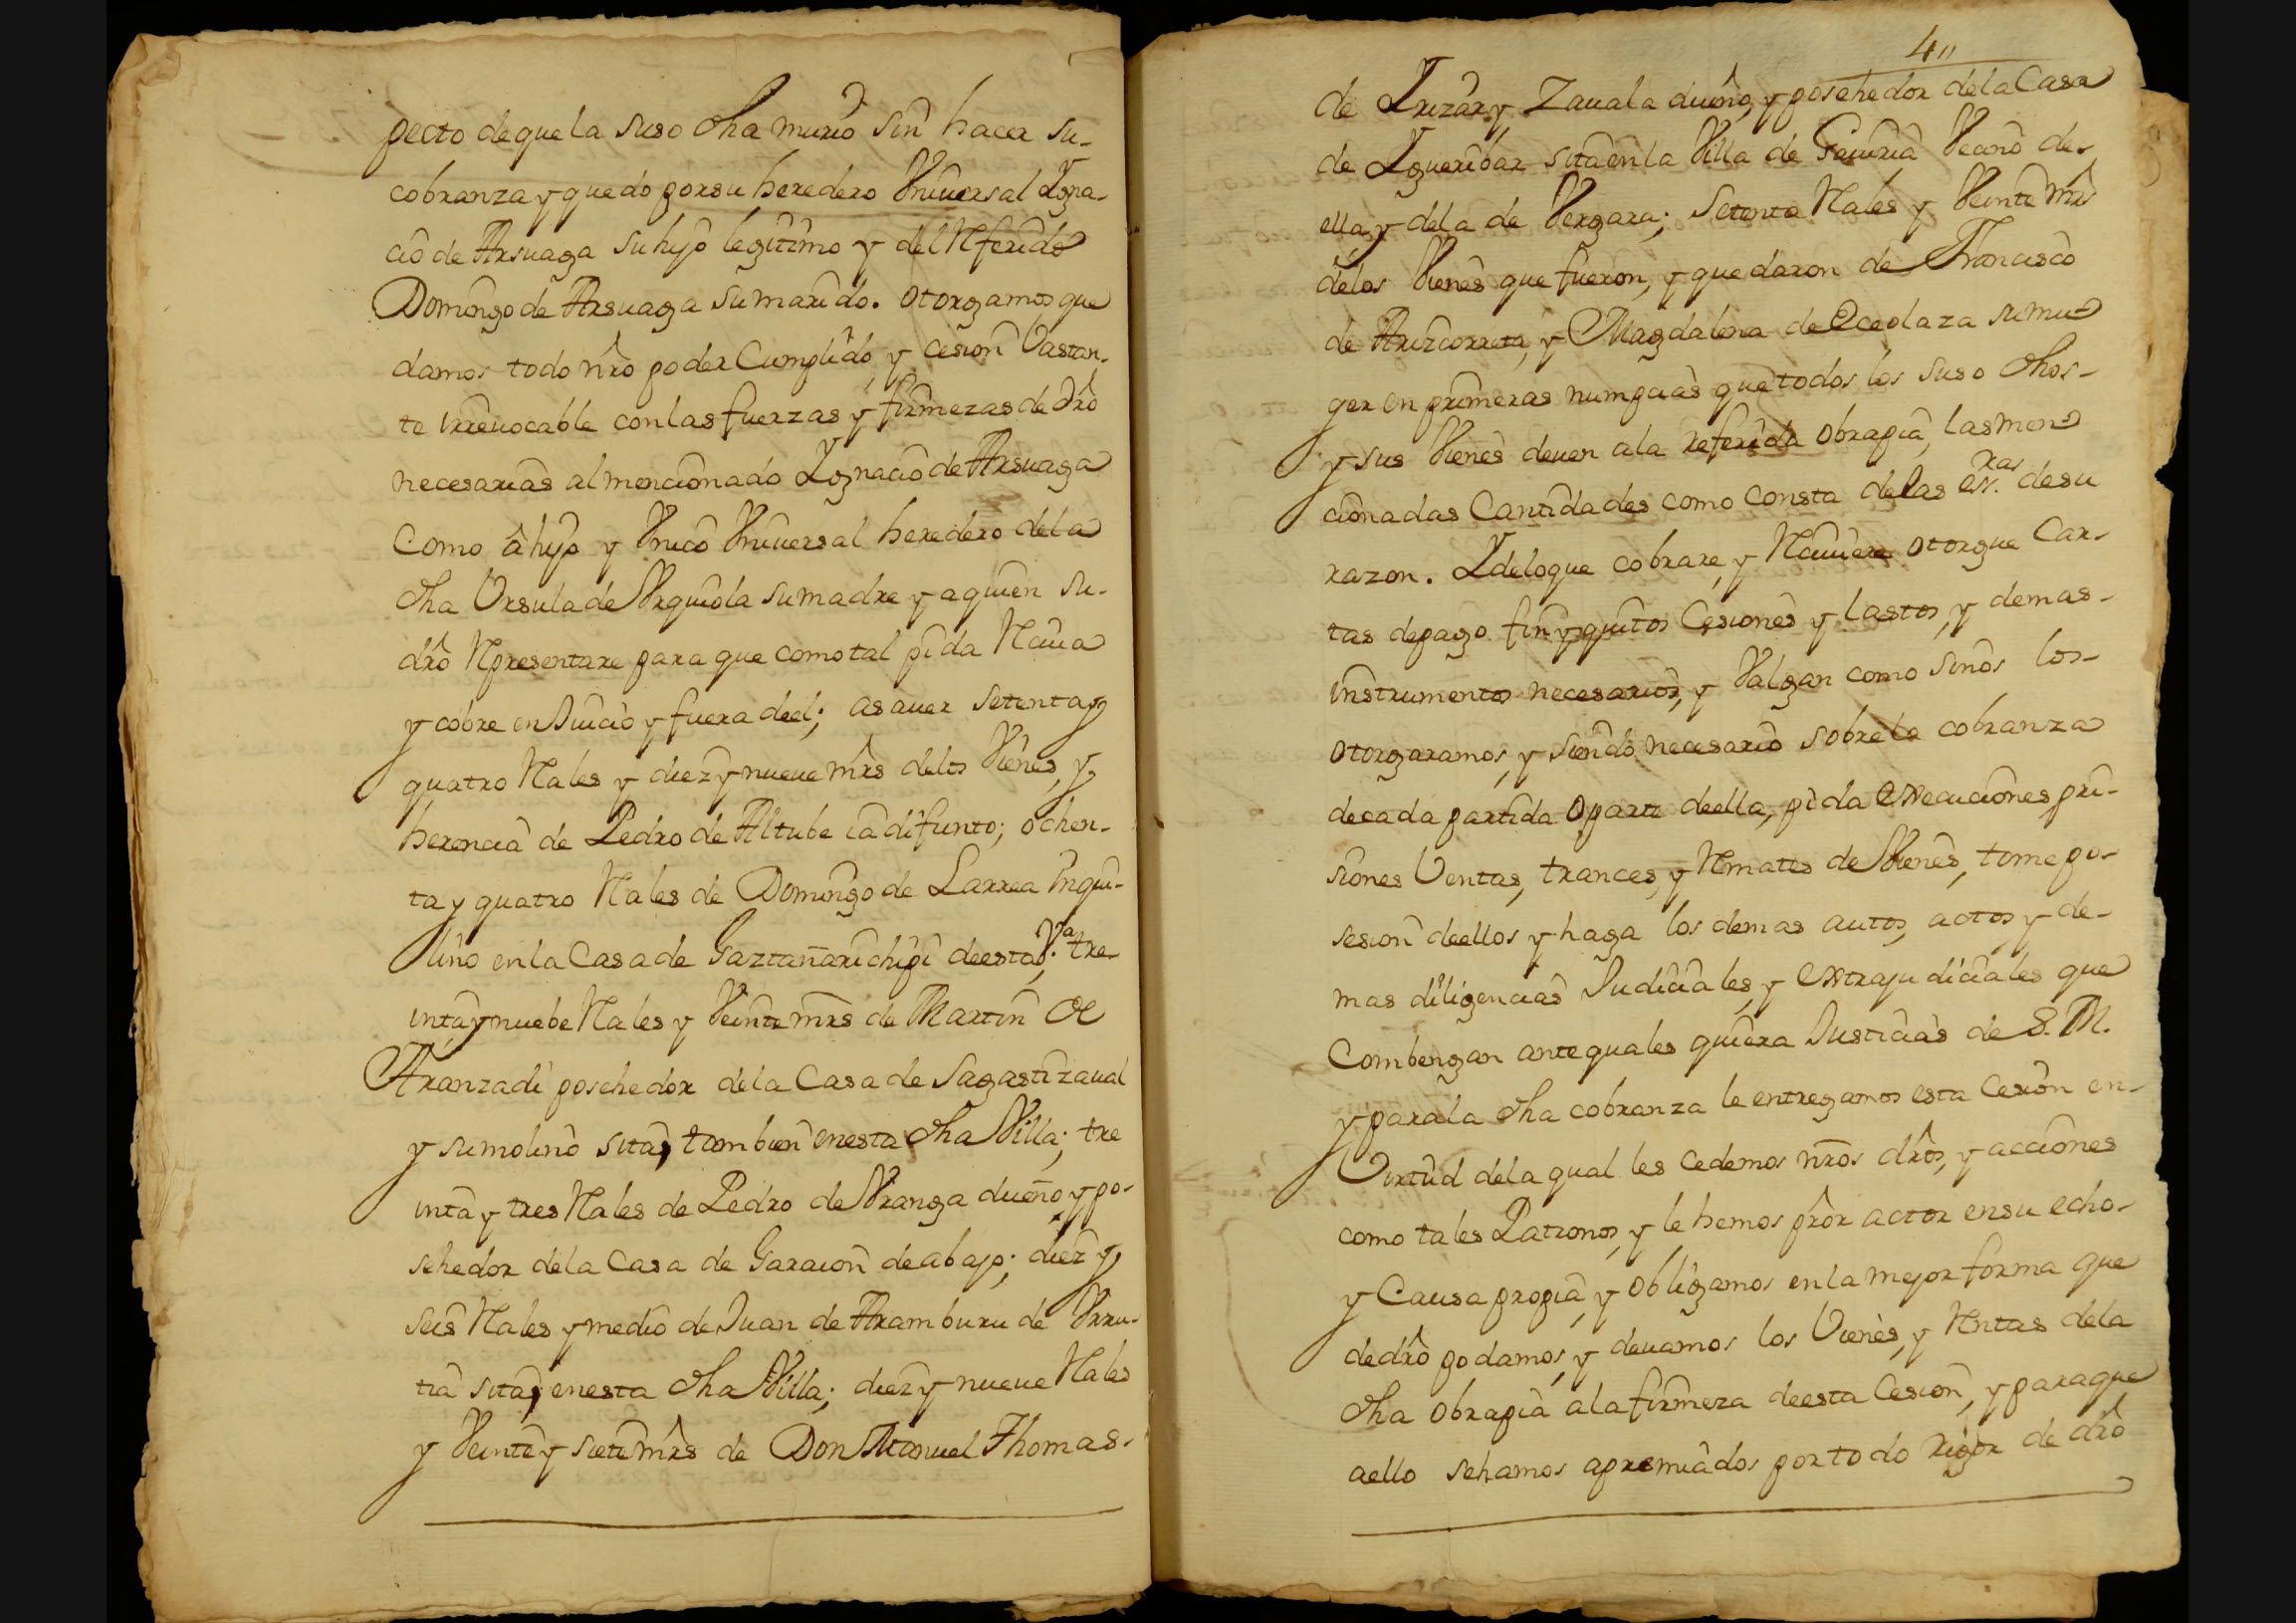 pecto de que la suso dha murio sin hacer su-
cobranza y quedo por su heredero Vniversal Ygna-
cio de Arsuaga su hijo legitimo y del Referido
Domingo de Arsuaga su marido. otorgamos que
damos todo nro poder Cumplido, y cesion Vastan-
te irrevocable con las fuerzas y firmezas de dro
necesarias al mencionado Ygnacio de Arsuaga
Como â hijo y Vnico Vniversal heredero de la
dha Vrsula de Vrquiola su madre y a quien su-
dro Representare para que como tal pida Reciua
y cobre en Juicio y fuera deel; asauer setenta y
quatro Rales y diez y nueue mrs de los Vienes, y
herencia de Pedro de Altube ia difunto; ochen-
ta y quatro Rales de Domingo de Larrea inqui-
lino en la Casa de Gaztañarichipi deesta Va. tre-
inta y nuebe Rales y Veinte mrs de Martin de
Aranzadi posehedor dela Casa de Sagastizaual
y su molino sita, tambien enesta dha Villa; tre
inta y tres Rales de Pedro de Vranga dueño, y po-
sehedor dela Casa de Garacion de abajo; diez y
seis Rales y medio de Juan de Aramburu de Vrru-
tia sita, enesta dha Villa; diez y nueue Rales
y Veinte y siete mrs de Don Manuel Thomas-
4
de Yrizar y Zauala dueño, y posehedor dela Casa
de Ygueribar sita en la Villa de Gauiria Vecino de-
ella y dela de Vergara; Setenta Rales y Veinte Mrs
de los Vienes que fueron, y quedaron de Francisco
de Arizcorreta, y Magdalena de Oceolaza su mu-
ger en primeras numpcias que todos los suso dhos-
y sus Vienes deuen ala referida obrapia, las men-
cionadas Cantidades como consta delas esras. desu
razon. Y delo que cobrare, y Reciuiere otorgue Car-
tas depago fin y quitos Cesiones y lastos, y demas-
instrumentos necesarios, y Valgan como si nos los-
otorgaramos, y siendo necesario sobre la cobranza
de cada partida o parte deella, pida execuciones, pri-
siones Ventas, trances, y Remates de Vienes, tome po-
sesion deellos y haga los demas autos, actos y de-
mas diligencias Judiciales, y extrajudiciales que
Combengan ante quales quiera Justicias de S. M.
y para la dha cobranza le entregamos esta Cesion en-
Virtud dela qual les cedemos nros dros, y acciones
como tales Patronos, y le hemos pror actor en su echo-
y Causa propia, y obligamos en la mejor forma que
de dro podamos, y deuamos los Vienes, y Rentas dela
dha obrapia ala firmeza deesta Cesion, y paraque
aello sehamos apremiados por todo rigor de dro